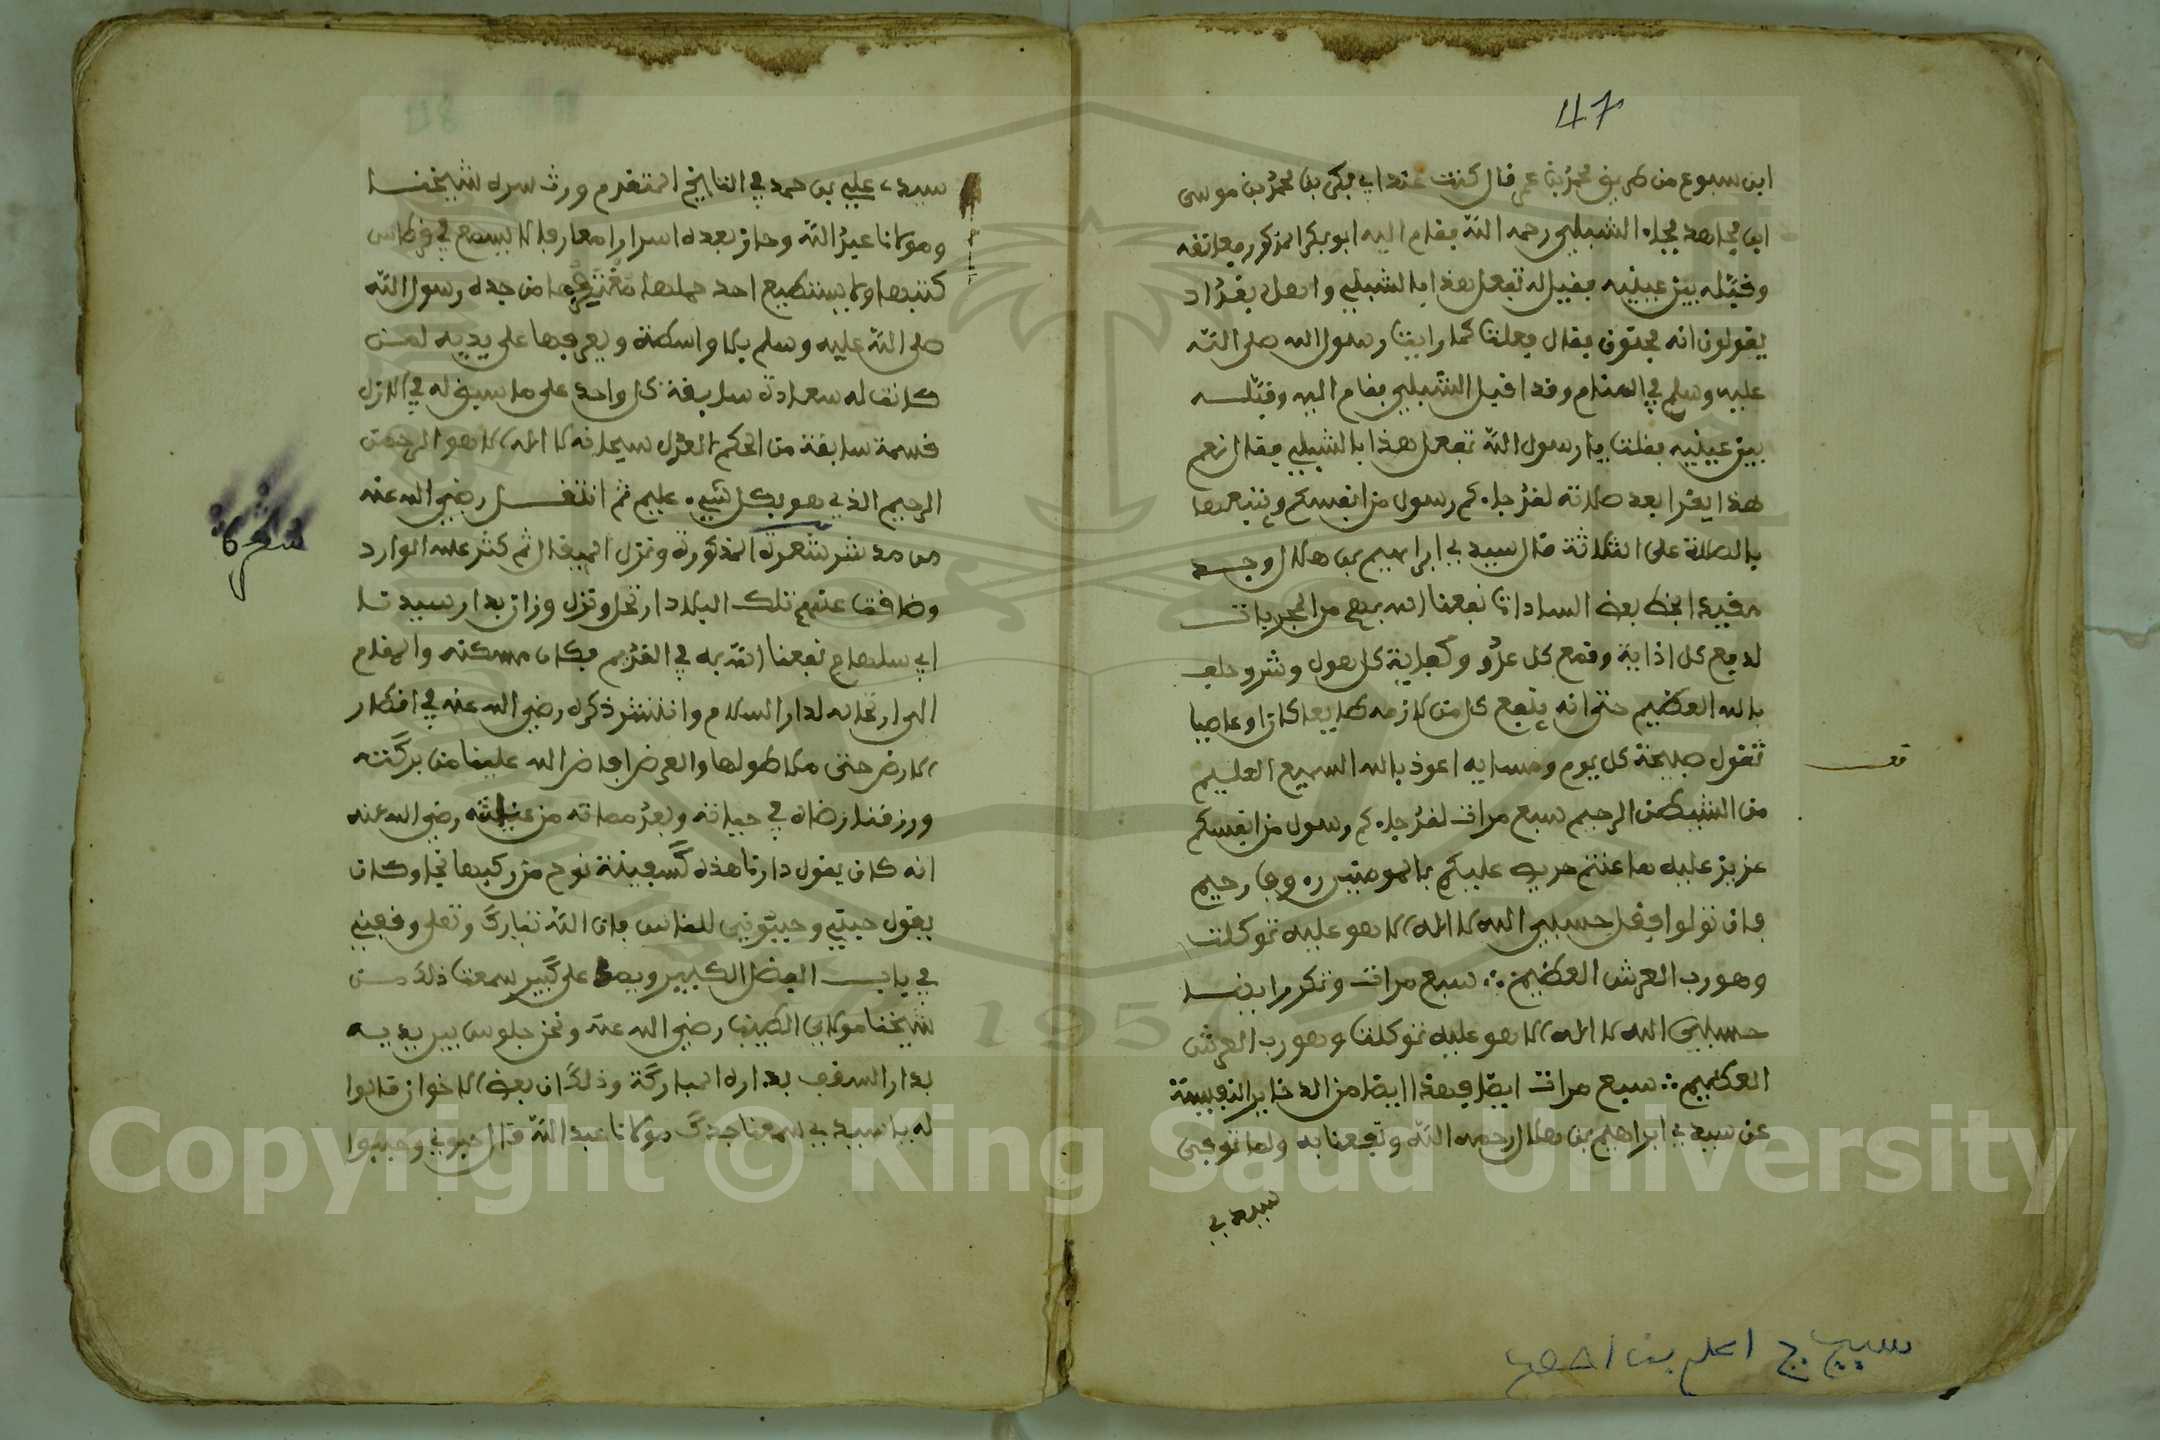 47
ابن سبوع من طريق محمد بن عمر قال كنت عند ابي بكر بن محمد بن موسى
ابن مجاهد فجاء الشبلي رحمه الله فقام اليه ابو بكر المذكور فعانقه
وقبّله بين عينيه فقيل له تفعل هذا بالشبلي واهل بغداد
يقولون انه مجنون فقال فعلت كما رايت رسول الله صلى الله
عليه وسلم في المنام وقد اقبل الشبلي فقام اليه وقبّله
بين عينيه فقلت يا رسول الله تفعل هذا بالشبلي فقال نعم
هذا يقرا بعد صلاته لقد جاءكم رسول من انفسكم ويتبعها
بالصلاة على الثلاثة قال سيدي ابراهيم بن هلال وجد
مقيدا بخط بعض السادات نفعنا الله بهم من المجربات
لدفع كل اذاية وقمع كل عدو وكفاية كل هول وشر وحلف
بالله العظيم حتى انه ينفع كل من لازمه طايعا كان او عاصيا
تقول صبيحة كل يوم ومسايه اعوذ بالله السميع العليم
من الشيطن الرجيم سبع مرات لقد جاءكم رسول من انفسكم
عزيز عليه ما عنتم حريص عليكم بالمومنين رءوف رحيم
فان تولوا فقل حسبي الله لا اله الا هو عليه توكلت
وهو رب العرش العظيم سبع مرات وتكرر ايضا
حسبي الله لا اله الا هو عليه توكلت وهو رب العرش
العظيم سبع مرات ايضا فهذا ايضا من الذخاير النفيسة
عن سيدي ابراهيم بن هلال رحمه الله ونفعنا به ولما توفي
سيدي
سيدي علي بن حمد في التاريخ المتقدم ورث سره شيخنا
ومولانا عبد الله وحاز بعده اسرارا معارف لا يسمع في قرطاس
كتبها ولا يستطيع احد حملها من جده رسول الله
صلى الله عليه وسلم بلا واسطة ويعرفها على يديه لمن
كانت له سعادة سابقة كل واحد على ما سبق له في الازل
قسمة سابقة من الحكم العدل سبحانه لا اله الا هو الرحمن
الرحيم الذي هو بكل شيء عليم ثم انتقل رضي الله عنه
من مدشر شعرة المذكورة ونزل الميقال ثم كثر عليه الوارد
وضاقت عنهم تلك البلاد ارتحل ونزل وزان بدار سيدنا
ابي سلهام نفعنا الله به في القديم فكان مسكنه والمقام
الى ارتحاله لدار السلام وانتشر ذكره رضي الله عنه في اقطار
الارض حتى ملا طولها والعرض افاض الله علينا من بركته
ورزقنا رضاه في حياته وبعد مماته من رضي الله عنه
انه كان يقول دارنا هذه كسفينة نوح من ركبها نجا وكان
يقول حبني وحببوني للناس فان الله تبارك وتعلى وقفني
في باب الفضل الكبير على كبير سمعت ذلك من
شيخنا مولاي الطيب رضي الله عنه ونحن جلوس بين يديه
بدار السقف بداره المباركة وذلك ان بعض الاخوان قالوا
له يا سيدي سمعنا جدك مولانا عبد الله قال احبوني وحببوا